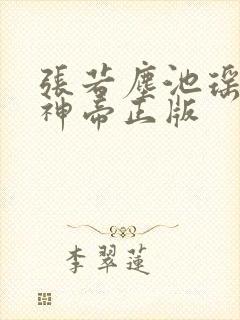 張若塵池瑤
神帝正版
李翠蓮